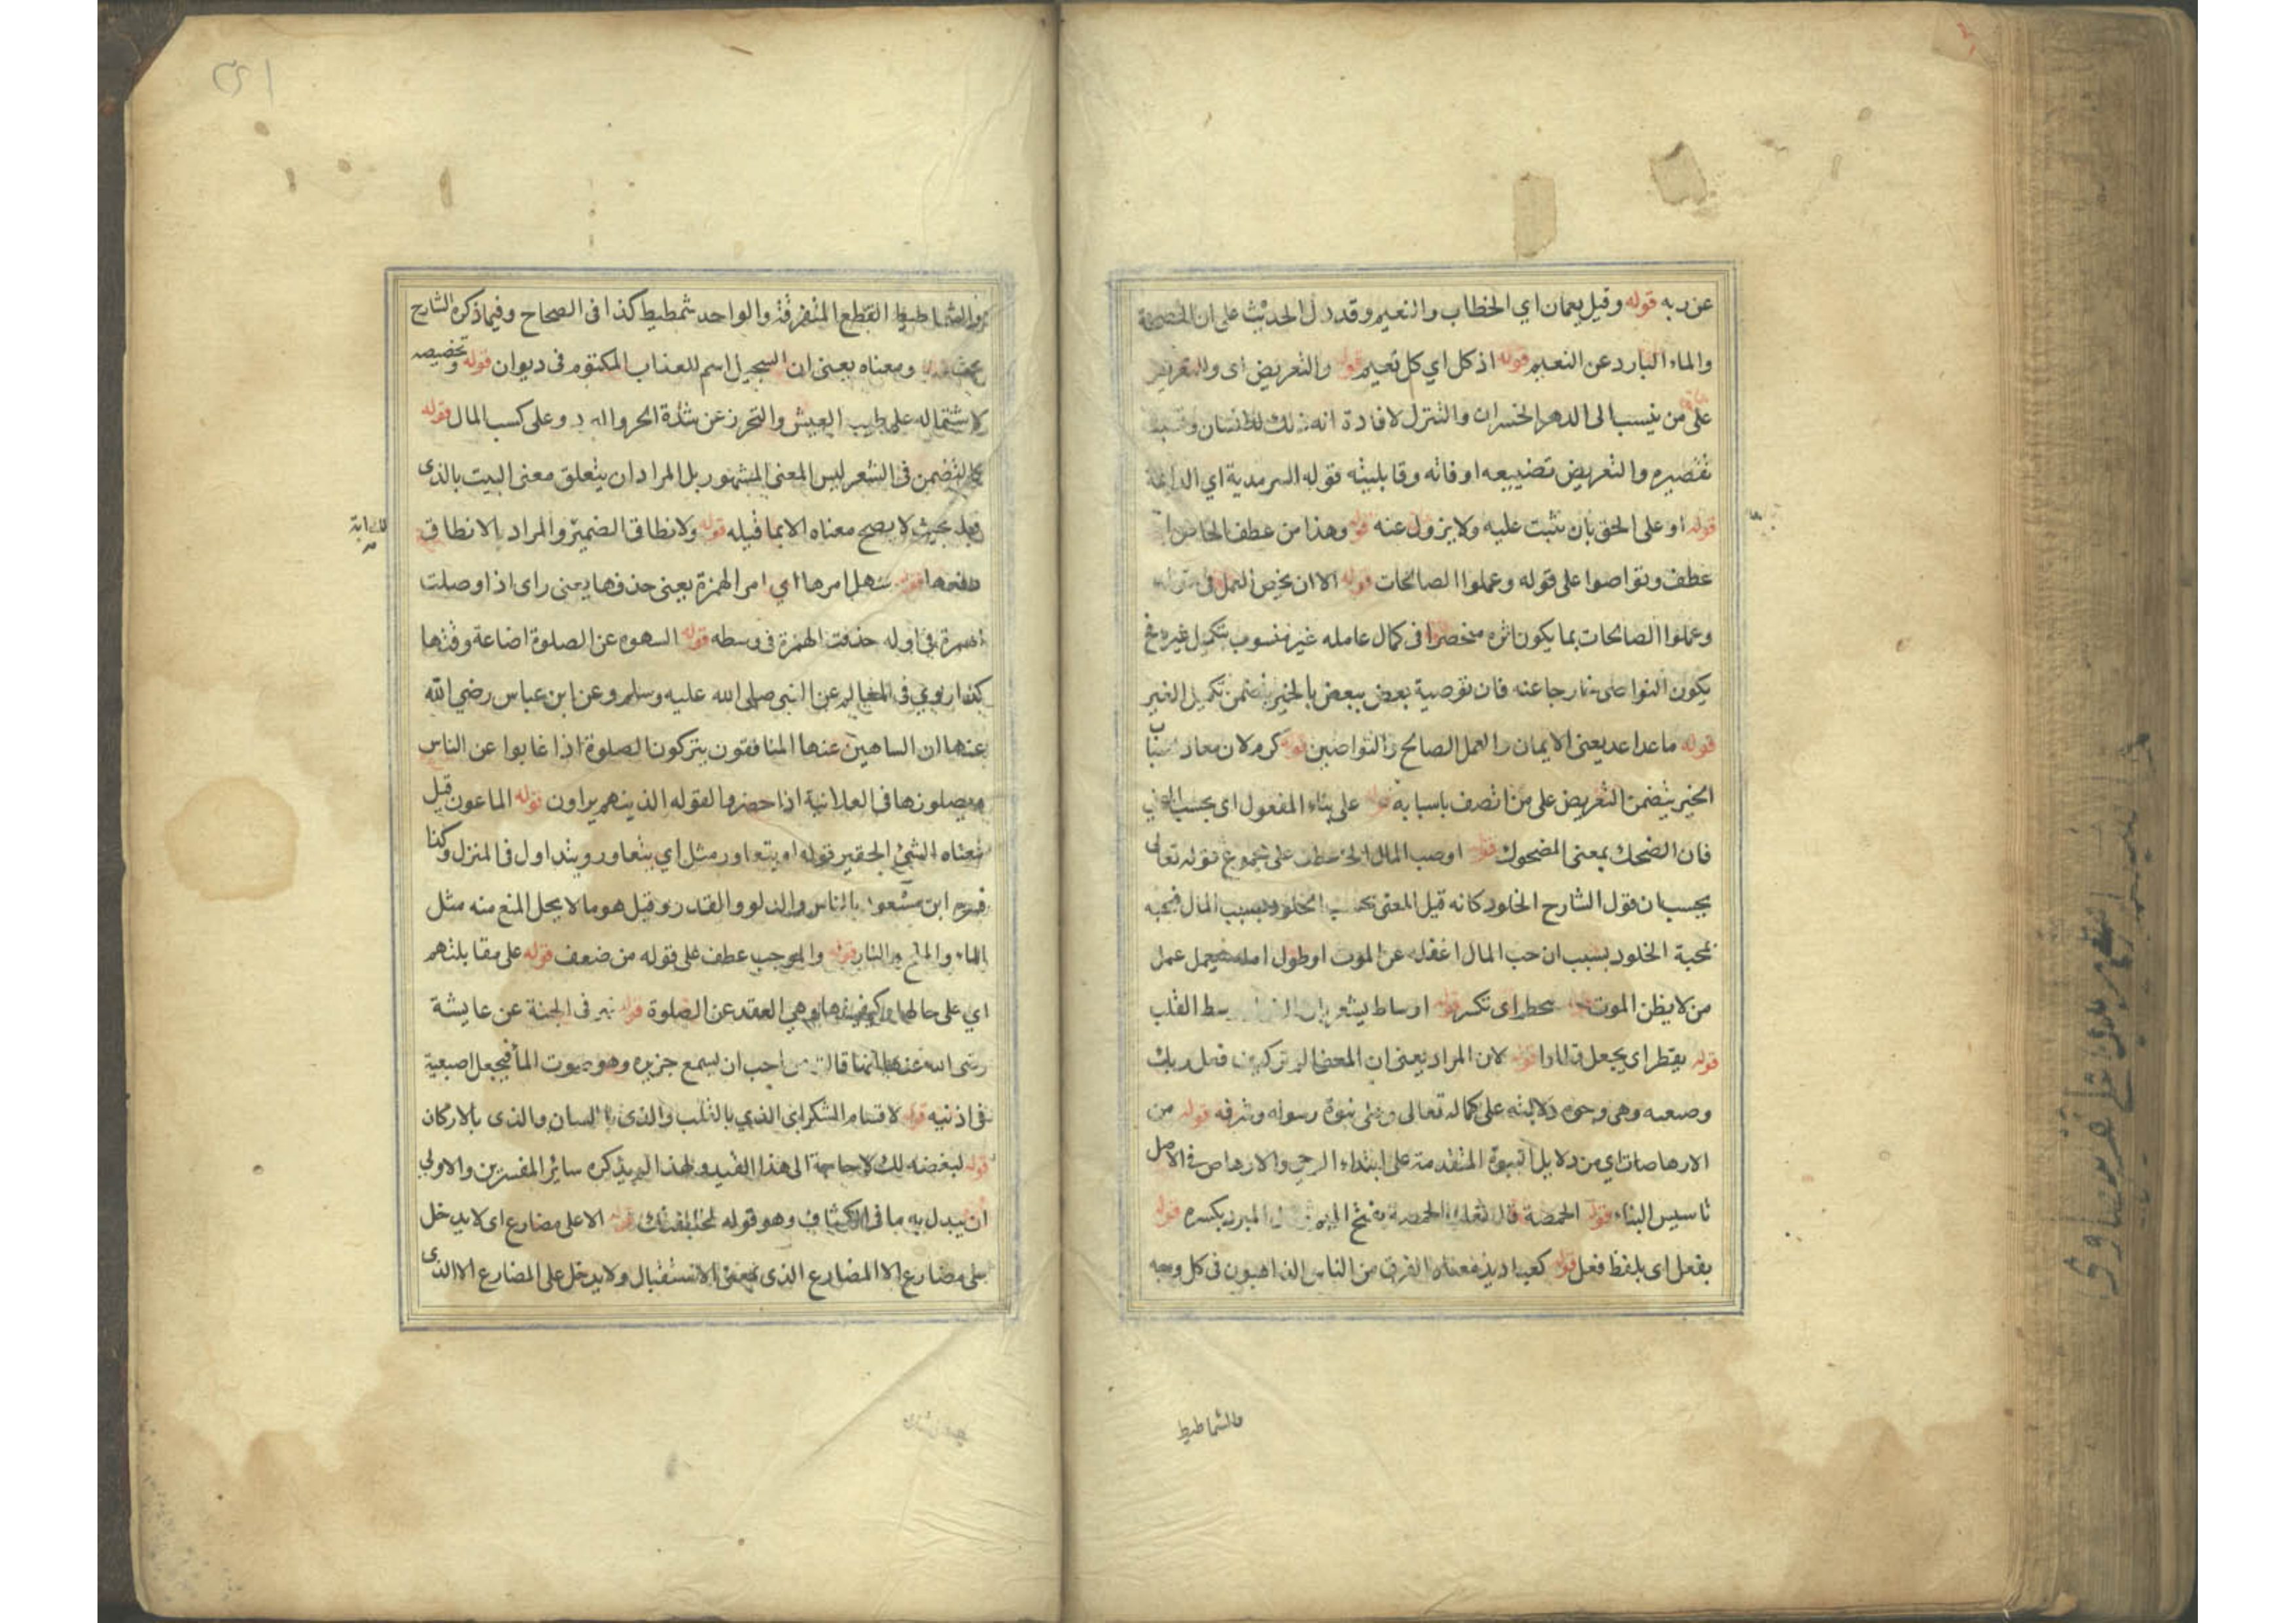 عن ربه قوله وقيل يعمان اي الخطاب والنعيم وقد دل الحديث على ان
والماء البارد عن النعيم قوله اذ كل اي كل نعيم قوله والتعريض اى والتعريض
على من ينسب الى الدهر الخسران والتنزل لافادة انه
تقصيره والتعريض تضييعه اوقاته وقابليته قوله السرمدية اي الدائمة
قوله او على الحق بان يثبت عليه ولا يزول عنه قوله وهذا من عطف الخاص
عطف وتواصوا على قوله وعملوا الصالحات قوله الا ان يخص العمل فى قوله
وعملوا الصالحات بما يكون اثره منحصرا فى كمال عامله غير منسوب بتكميل غيره فح
يكون التواصى خارجا عنه فان توصية بعض ببعض بالخير يتضمن تكميل الغير
قوله ما عدا عد يعنى الايمان والعمل الصالح والتواصيين قوله كرم لان معاد
الخير يتضمن التعريض على من اتصف باسبابه قوله على بناء المفعول اى بحسب
فان الضحك بمعنى المضحوك قوله اوصب المال الخ عطف على مجموع قوله تعالى
يحسب ان قول الشارح الخلود كانه قيل المعنى يحسب الخلود بسبب المال فيحبه
لمحبة الخلود بسبب ان حب المال اغفله عن الموت او طول امله فيعمل عمل
من لا يظن الموت قوله تحطم اى تكسر قوله اوساط يشعر بان وسط القلب
قوله يقتطر اى يجعل قوله لان المراد يعنى ان المعنى الم تر كيف فعل ربك
وصنعه وهى وجوه دلالته على كماله تعالى وعلى نبوة رسوله وشرفه قوله من
الارهاصات اي من دلايل النبوة المتقدمة على ابتداء الوحى والارهاص فى الاصل
تاسيس البناء قوله الحمصة قال ثعلب الحمصة بفتح الميم وقال المبرد بكسره قوله
بفعل اى بلفظ فعل قوله كعباديد معناه الفرق من الناس الذاهبون فى كل وجه
والشماطيط
والشماطيط القطع المتفرقة والواحد شمطيط كذا فى الصحاح وفيما ذكره الشارح
ومعناه يعنى ان السجيل اسم للعذاب المكتوم فى ديوان قوله وتخصيصه
لاشتماله على طيب العيش والتحرز عن شدة الحر والبرد وعلى كسب المال قوله
كالتضمن فى الشعر ليس المعنى المشهور بل المراد ان يتعلق معنى البيت بالذى
قبله بحيث لا يصح معناه الا بما قبله قوله ولانطاق الضمير والمراد بالانطاق
قوله سهل امرها اي امر الهمزة يعنى حذفها يعنى راى اذا وصلت
الهمزة فى اوله حذفت الهمزة فى وسطه قوله السهو عن الصلوة اضاعة وقتها
كذا روي فى المعالم عن النبي صلى الله عليه وسلم وعن ابن عباس رضي الله
عنهما ان الساهين عنها المنافقون يتركون الصلوة اذا غابوا عن الناس
ويصلونها فى العلانية اذا حضروا لقوله الذين هم يراون قوله الماعون قيل
معناه الشئ الحقير قوله او يتعاور مثل اي يتعاور ويتداول فى المنزل وكذا
فسره ابن مسعود بالفاس والدلو والقدر وقيل هو ما لا يحل المنع منه مثل
الماء والملح والنار قوله والموجب عطف على قوله من ضعف قوله على مقابلتهم
اي على حالها وكيفيتها وهي العقد عن الصلوة قوله نهر فى الجنة عن عايشة
رضى الله عنها انها قالت من احب ان يسمع خريره وهو صوت الماء فيجعل اصبعيه
فى اذنيه قوله لاقسام الشكر اى الذي بالقلب والذى باللسان والذى بالاركان
قوله لبغضه لك لا حاجة الى هذا القيد ولهذا لم يذكره سائر المفسرين والاولى
ان يبدل به ما فى الكشاف وهو قوله لمخالفتك قوله الا على مضارع اى لا يدخل
على مضارع الا المضارع الذى بمعنى الاستقبال ولا يدخل على المضارع الا الذى